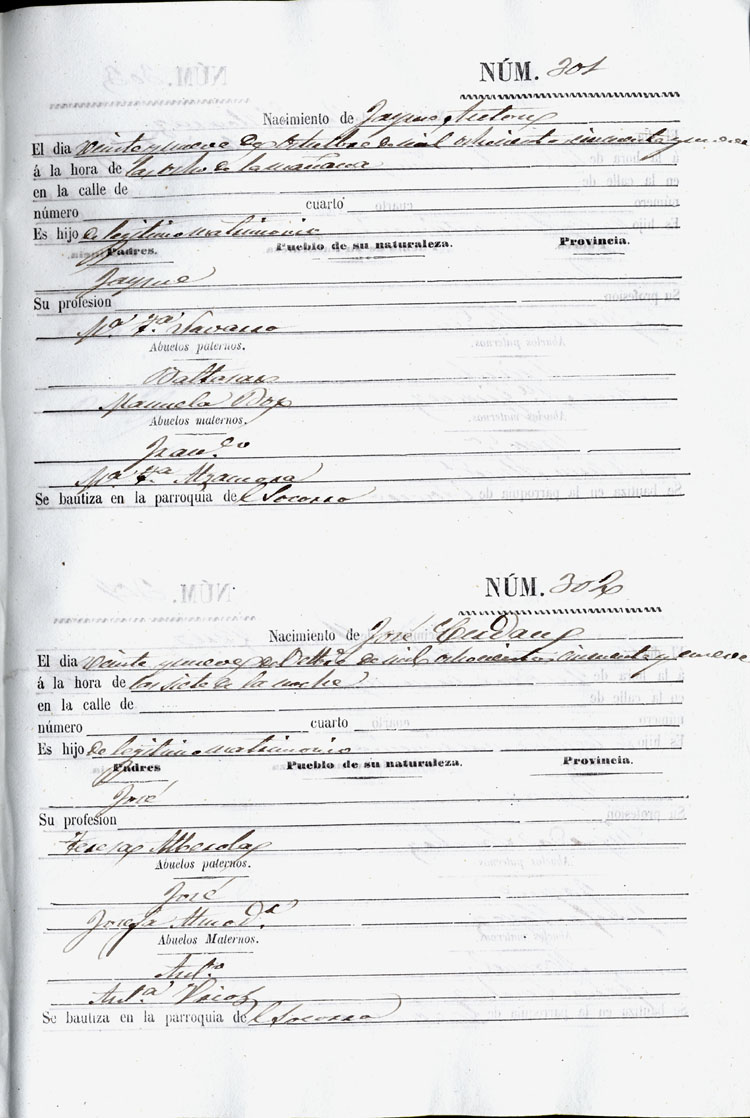 NÚM. 301
Nacimiento de Jayme Antony
El dia veinte y nueve de Octubre de mil ochocientos cincuenta y nueve
á la hora de las ocho de la mañana
en la calle de
número cuarto
Es hijo de legitimo matrimonio
Padres. Pueblo de su naturaleza. Provincia.
Jayme
Su profesion
Mª Fª Navarro
Abuelos paternos.
Baltasar
Manuela
Abuelos maternos.
Franco
Mª Fª
Se bautiza en la parroquia del Socorro
NÚM. 302
Nacimiento de José
El dia veinte y nueve de Octbre de mil ochocientos cincuenta y nueve
á la hora de las siete de la noche
en la calle de
número cuarto
Es hijo de legitimo matrimonio
Padres Pueblo de su naturaleza. Provincia.
José
Su profesion
Teresa Alberola
Abuelos paternos.
José
Josefa
Abuelos Maternos.
Anto
Anta
Se bautiza en la parroquia del Socorro